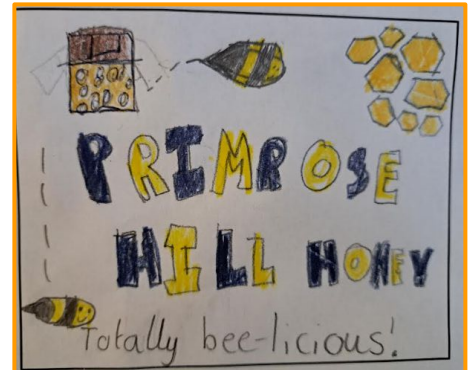 PRIMROSE
HILL HONEY
Totally bee-licious!